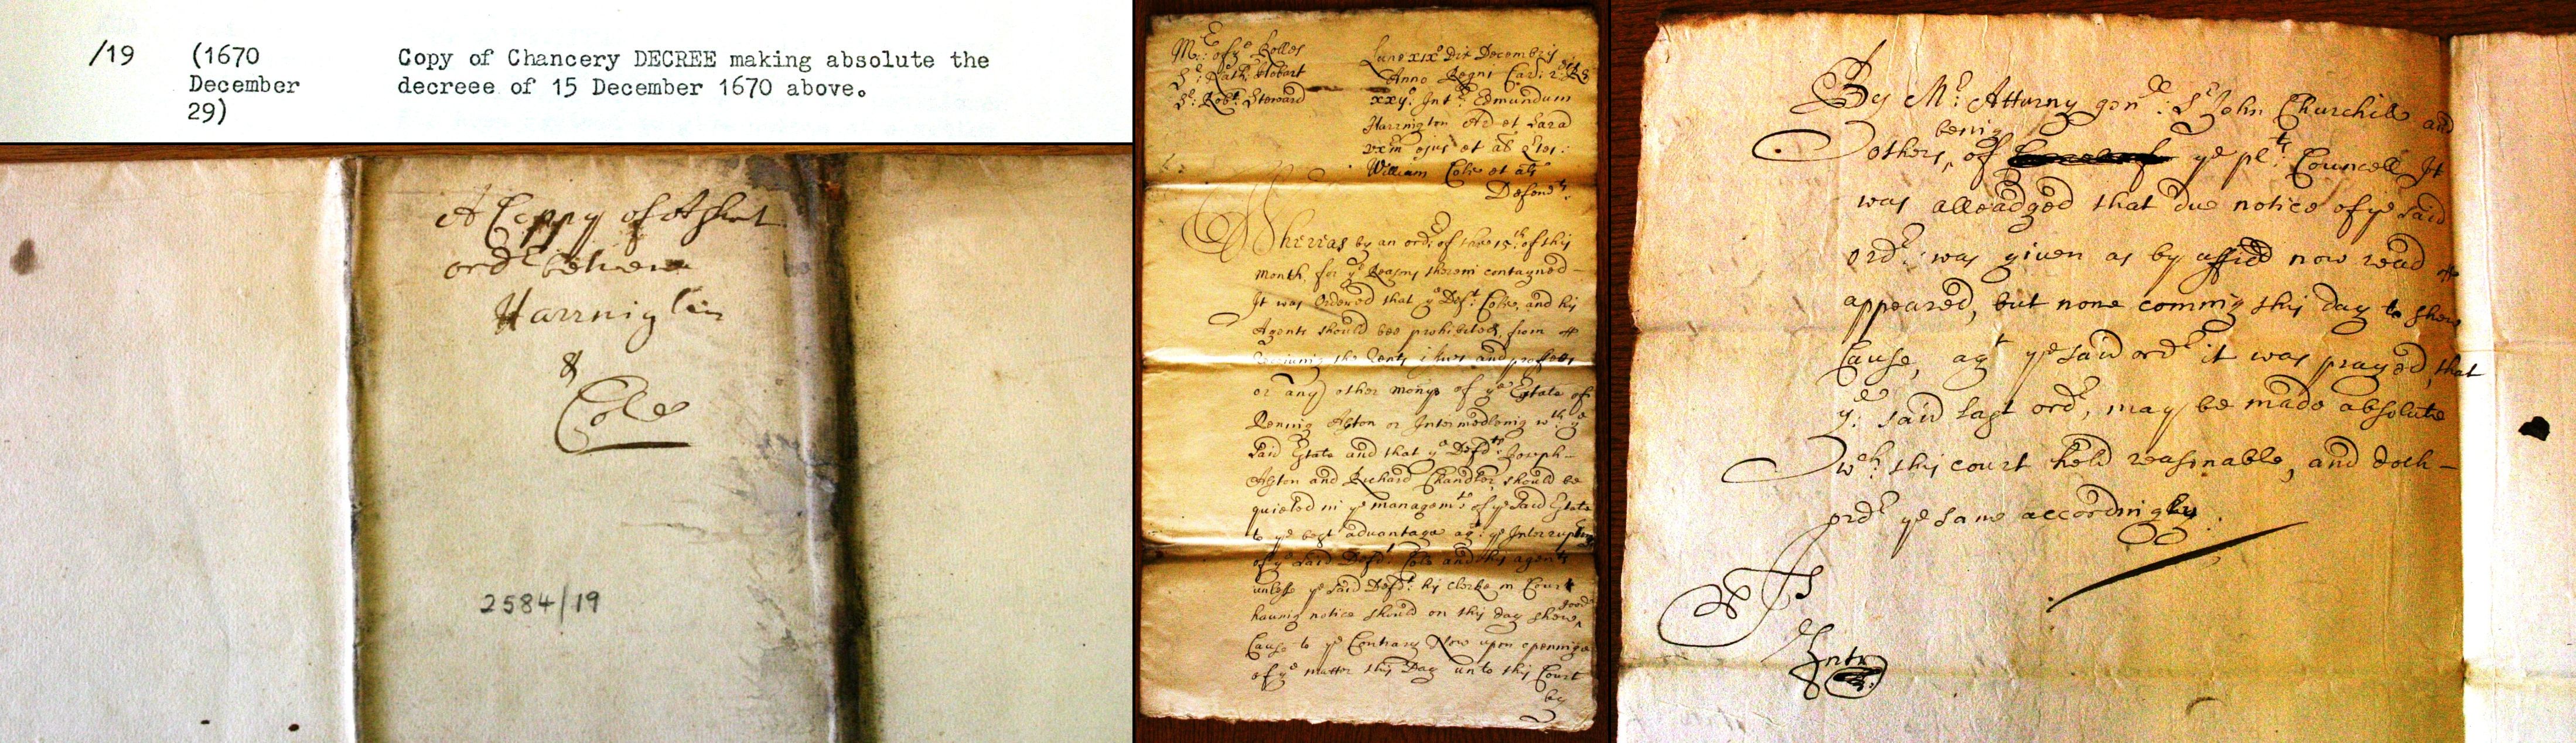 /19 (1670 Copy of Chancery DECREE making absolute the
December decreee of 15 December 1670 above.
29)
A Coppy of Ashut
ordr betweene
Harrnigton
&
Cole
2584/19
Mr: of ye Rolles
Sr: Nath: Hobart
Sr: Robt: Steward
Lune xixo Die Decembris
Anno Regni Car: 2di Rs
xxijo. Intr: Edmundum
Harrington Ar et Sara
vxm ejus et al Qtes:
William Cole et als
Defendts:
Wherras by an ordr: of the 15th: of this
month, for ye Reasons therein contayned -
It was Ordered that ye Deft: Cole, and his
Agents should bee prohibited, from
Receiuing the Rents issues and proffitts
or any other monys of ye Estate of
Rennig Aston or Intermedleing wth: ye
said Estate and that ye Defdts: Joseph -
Aston and Richard Chandler should be
quieted in ye managemt: of ye said Estate
to ye best aduantage agt: ye Interruption
of ye said Defdt: Cole and his agents
unless ye said Defts: his Clerke in Court
hauing notice should on this day shew good
Cause to ye Contrary Now upon openninge
of ye matter this Day unto this Court
by
By Mr: Atturny genall: Sr John Churchill and
others, being of ye plts: Councell It
was alleadged that due notice of ye said
ordr: was giuen as by affidd now read
appeared, but none comming this day to shew
Cause, agt ye said ordr it was prayed, that
ye: said last ordr, may be made absolute
wch: this court held reasonable, and doth -
ordr ye same accordingly